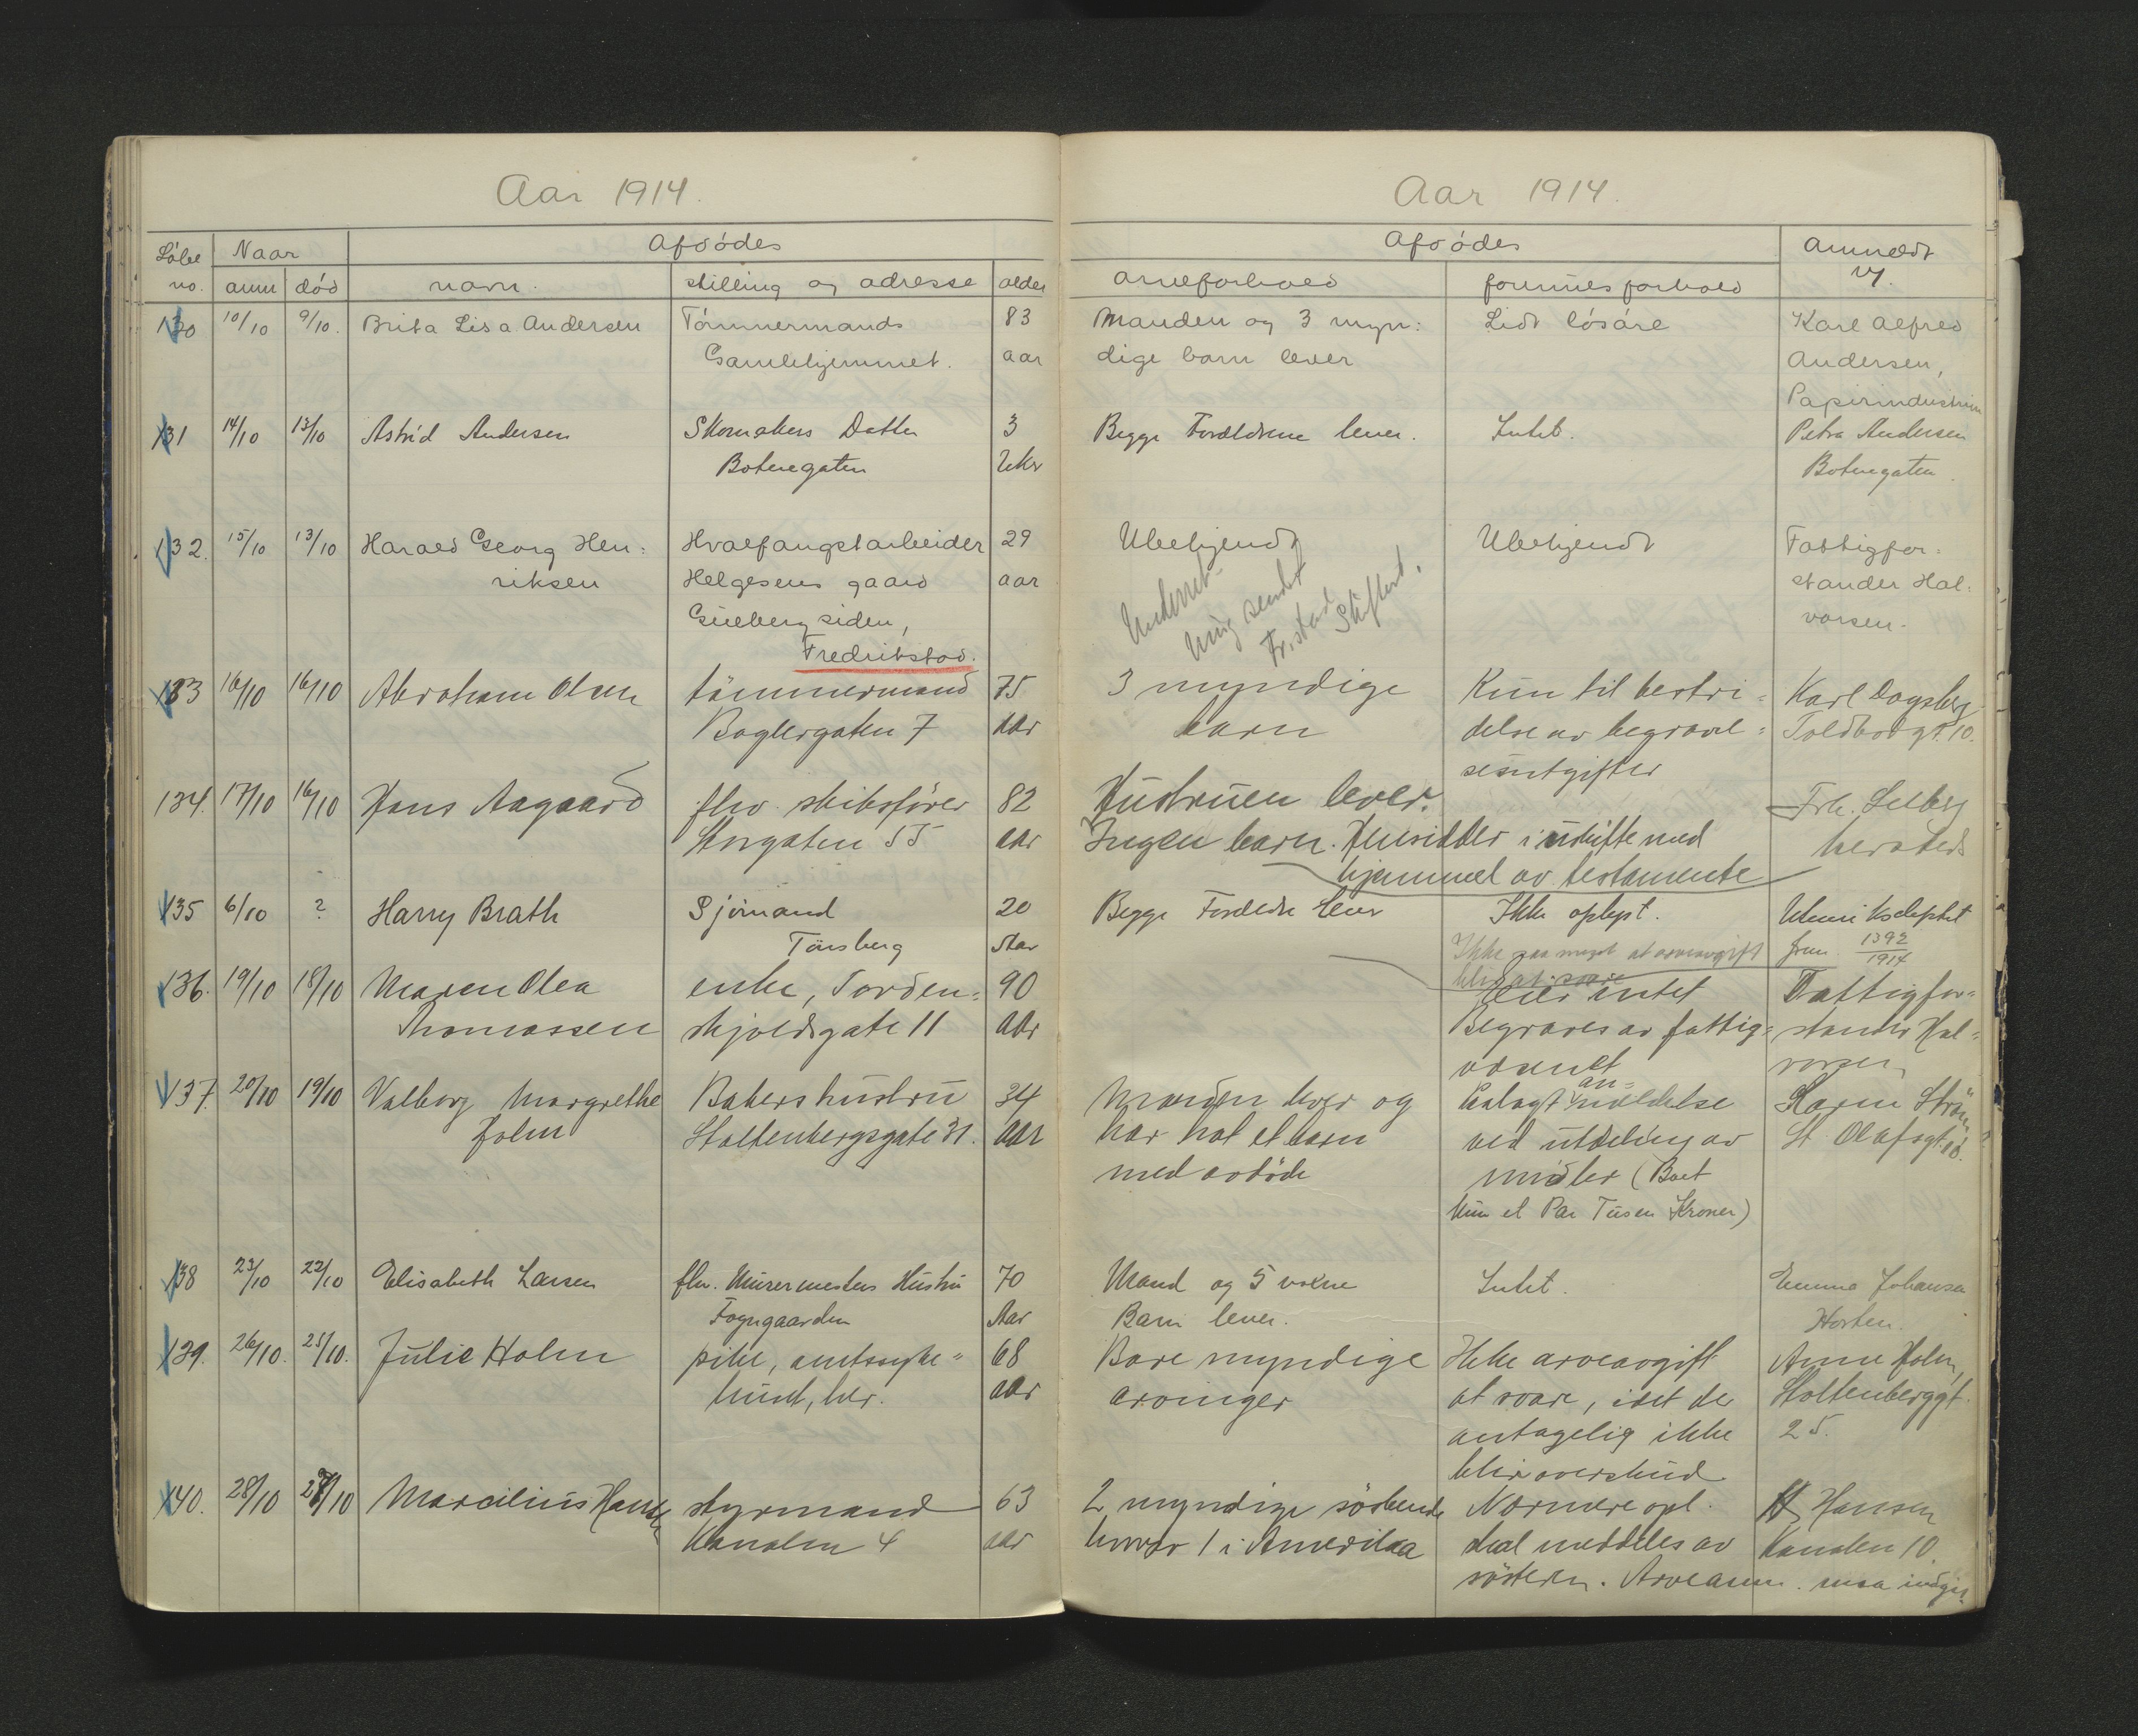 Aar 1914.
Løbe no. Naar Afdødes
anm død navn. stilling og adresse alder
130 10/10 9/10. Brita Lisa Andersen Tømmermands 83
Gamlehjemmet. aar
131 14/10 13/10 Astrid Andersen Skomakers Datter 3
Botnegaten Uker
132. 15/10 13/10 Harald Georg Hen: Hvalfangstarbeider 29
riksen Helgesens gaard aar
siden,
Fredrikstad.
133 16/10 16/10 Abraham Olsen tömmermand 75
Baglergaten 7 aar
134. 17/10 16/10 Hans Aagaard fhv. skibsfører 82
Storgaten 55 aar
135 6/10 ? Harry Brath Sjömand 20
Tönsberg Aar
136. 19/10 18/10 Maren Olea enke, Torden= 90
Thomassen skjoldsgate 11 aar
137. 20/10 19/10 Valborg Margrethe Bakers hustru 34
Holm Stoltenbergsgate 31. aar
138 23/10 22/10 Elisabeth Larsen fhv. Murermesters Hustru 70
Fogngaarden Aar
139. 26/10. 25/10. Julie Holm pike, amtssyke= 68
huset, her. aar
140. 28/10 /10 Marcilius Hansen styrmand 63
Kanalen 4 aar
Aar 1914.
Afdødes Anmeldt
arveforhold formuesforhold
Manden og 3 myn: Lidt løsøre Karl Alfred
dige barn lever Andersen,
Papirindustrien
Begge Forældrene lever. Intet. Petra Andersen
Botnegaten.
Ubekjendt Ubekjendt Fattigfor:
stander Hal:
vorsen.
sendt
Fr.stad Skifteret.
3 myndige Kun til bestri= Karl Dagsberg
barn delse av begravel= Toldbodgt. 10.
sesutgifter
Hustruen lever. Frk. Selberg
Ingen barn. Hensidder i uskifte med hersteds
hjemmel av testamente
Begge Forældre lever Ikke oplyst. Utenriksdeptet
Ikke saa meget at arveavgift jrnr. 1392/1914
blir at svare
Eier intet Fattigfor=
Begraves av fattig= stander Hal=
væsenet vorsen
Manden lever og an=
har hat et barn meldelse Karen Ström
med avdöde ved utdeling av St. Olafsgt. 10.
midler (Boet
kun et Par Tusen Kroner)
Mand og 5 voksne Intet. Emma Johansen
Barn lever. Horten.
Bare myndige Ikke arveavgift Anna Holm,
arvinger at svare, idet der Stoltenberggt.
antagelig ikke 25.
blir overskud.
2 myndige söskende Nærmere opl. Hansen
hvorav 1 i Amerika skal meddeles av Kanalen 10.
söstern. Arveanm. maa indgis.